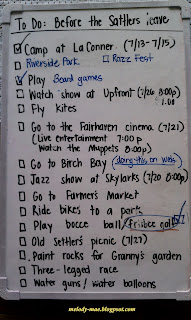 To Do: Before the Sattlers leave
Camp at La Conner (7/13-7/15)
Riverside Park Razz Fest
Play Board games
Watch show at Upfront (7/26 8:00p)
Fly kites
Go to the Fairhaven cinema (7/21)
(Live entertainment 7:00p
Watch the Muppets 8:00p)
Go to Birch Bay
Jazz show at Skylarks (7/20 8:00p)
Go to Farmer's Market
Ride bikes to a park
Play bocce ball / frisbee golf
Old Settler's picnic (7/27)
Paint rocks for Granny's garden
Three-legged race
Water guns / water balloons
melody-mae.blogspot.com